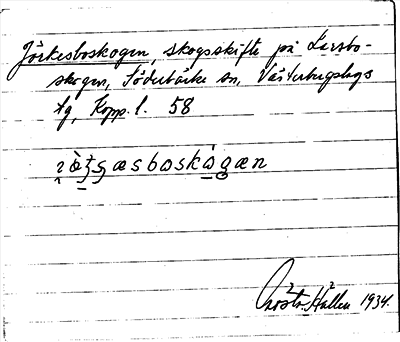 Jörkesboskogen, skogsskifte på Larsbo-
skogen, Söderbärke sn, Västerbergslags
tg, Kopp. l. 58
æsboskogæn
Gösta Hallén 1934.